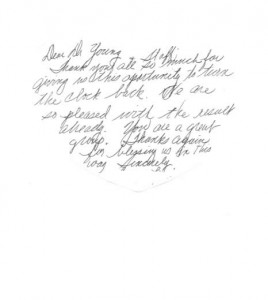 Dear Dr Young & Staff,
Thank you all so much for
giving us this opportunity to turn
the clock back. We are
so pleased with the result
already. You are a great
group. Thanks again
for blessing us in this
way Sincerely,